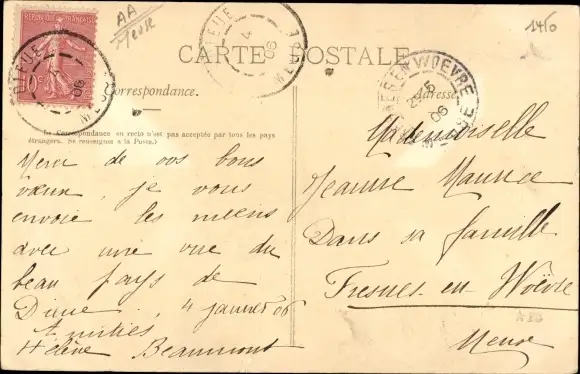 AA
Meuse
1410
REPUBLIQUE FRANÇAISE
DIEUE
4
06
MEUSE
CARTE POSTALE
Correspondance.
Adresse
FRESNES-EN-WOEVRE
5
06
MEUSE
La Correspondance en recto n'est pas acceptée par tous les pays
étrangers. (Se renseigner à la Poste.)
Merci de vos bons
vœux, je vous
envoie les miens
avec une vue du
beau pays de
Dieue, 4 janvier 06
Amitiés
Hélène Beaumont
Mademoiselle
Jeanne Maurice
Dans sa famille
Fresnes-en Woëvre
Meuse